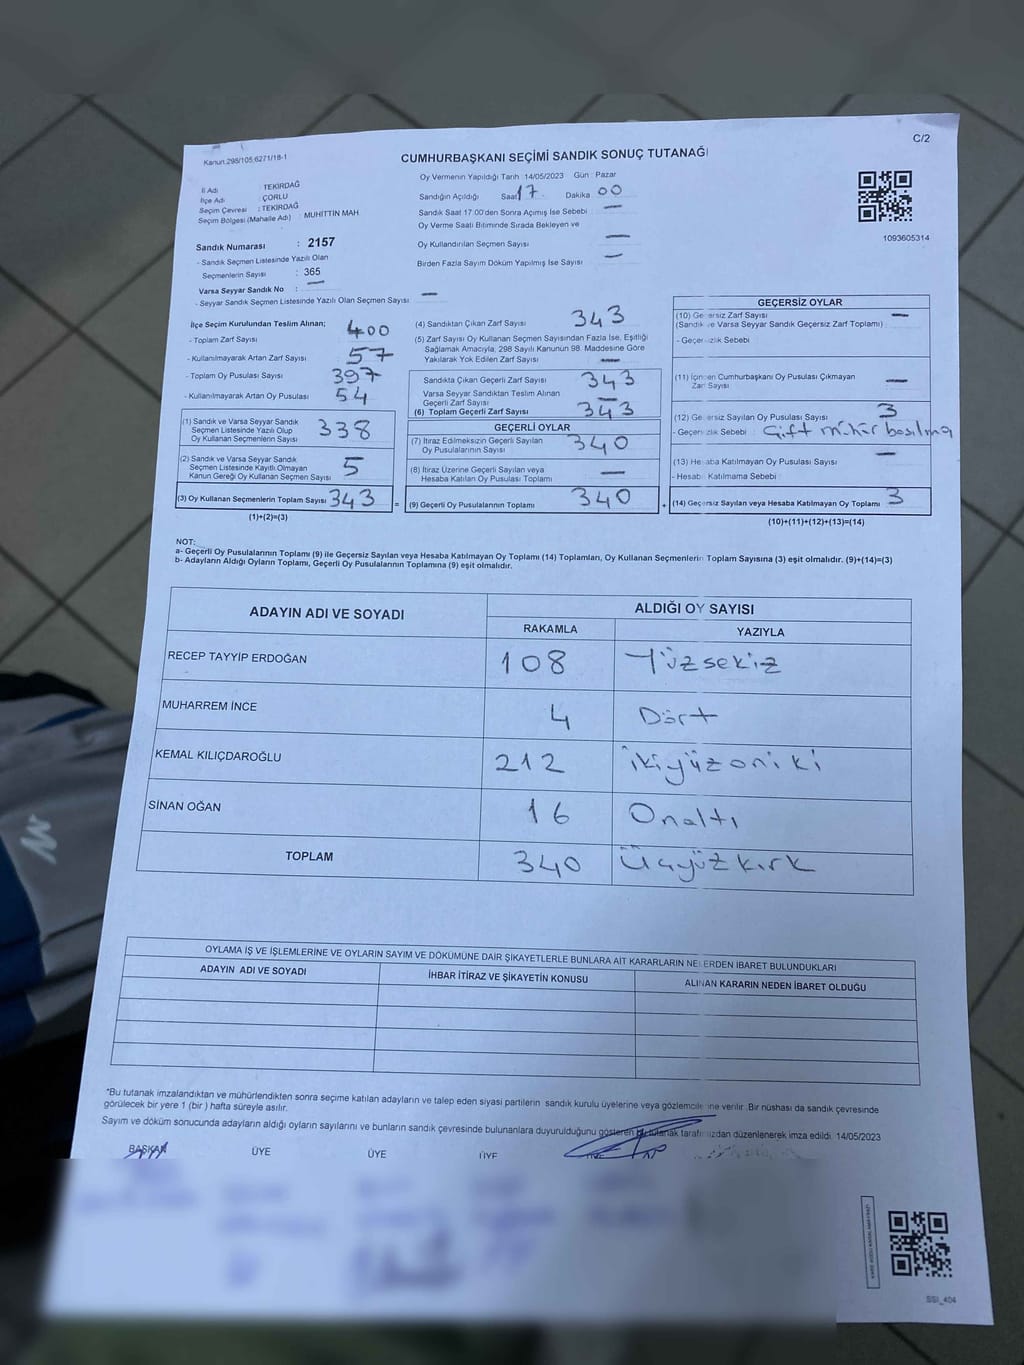 C/2
Kanun.298/105,6271/18-1
CUMHURBAŞKANI SEÇİMİ SANDIK SONUÇ TUTANAĞI
İl Adı : TEKİRDAĞ
İlçe Adı : ÇORLU
Seçim Çevresi : TEKİRDAĞ
Seçim Bölgesi (Mahalle Adı) : MUHİTTİN MAH
Sandık Numarası : 2157
- Sandık Seçmen Listesinde Yazılı Olan
Seçmenlerin Sayısı : 365
Varsa Seyyar Sandık No : —
- Seyyar Sandık Seçmen Listesinde Yazılı Olan Seçmen Sayısı —
Oy Vermenin Yapıldığı Tarih 14/05/2023 Gün : Pazar
Sandığın Açıldığı Saat 17 Dakika 00
Sandık Saat 17:00'den Sonra Açımış İse Sebebi —
Oy Verme Saati Bitiminde Sırada Bekleyen ve
Oy Kullandırılan Seçmen Sayısı —
Birden Fazla Sayım Döküm Yapılmış İse Sayısı —
1093605314
İlçe Seçim Kurulundan Teslim Alınan;
- Toplam Zarf Sayısı 400
- Kullanılmayarak Artan Zarf Sayısı 57
- Toplam Oy Pusulası Sayısı 397
- Kullanılmayarak Artan Oy Pusulası 54
(1) Sandık ve Varsa Seyyar Sandık
Seçmen Listesinde Yazılı Olup
Oy Kullanan Seçmenlerin Sayısı 338
(2) Sandık ve Varsa Seyyar Sandık
Seçmen Listesinde Kayıtlı Olmayan
Kanun Gereği Oy Kullanan Seçmen Sayısı 5
(3) Oy Kullanan Seçmenlerin Toplam Sayısı 343 =
(1)+(2)=(3)
(4) Sandıktan Çıkan Zarf Sayısı 343
(5) Zarf Sayısı Oy Kullanan Seçmen Sayısından Fazla İse, Eşitliği
Sağlamak Amacıyla, 298 Sayılı Kanunun 98. Maddesine Göre
Yakılarak Yok Edilen Zarf Sayısı —
Sandıkta Çıkan Geçerli Zarf Sayısı 343
Varsa Seyyar Sandıktan Teslim Alınan
Geçerli Zarf Sayısı —
(6) Toplam Geçerli Zarf Sayısı 343
GEÇERLİ OYLAR
(7) İtiraz Edilmeksizin Geçerli Sayılan
Oy Pusulalarının Sayısı 340
(8) İtiraz Üzerine Geçerli Sayılan veya
Hesaba Katılan Oy Pusulası Toplamı —
(9) Geçerli Oy Pusulalarının Toplamı 340 +
GEÇERSİZ OYLAR
(10) Geçersiz Zarf Sayısı —
(Sandık ve Varsa Seyyar Sandık Geçersiz Zarf Toplamı)
- Geçersizlik Sebebi
(11) İçinden Cumhurbaşkanı Oy Pusulası Çıkmayan
Zarf Sayısı —
(12) Geçersiz Sayılan Oy Pusulası Sayısı 3
- Geçersizlik Sebebi : Çift mühür basılma
(13) Hesaba Katılmayan Oy Pusulası Sayısı —
- Hesaba Katılmama Sebebi
(14) Geçersiz Sayılan veya Hesaba Katılmayan Oy Toplamı 3
(10)+(11)+(12)+(13)=(14)
NOT:
a- Geçerli Oy Pusulalarının Toplamı (9) ile Geçersiz Sayılan veya Hesaba Katılmayan Oy Toplamı (14) Toplamları, Oy Kullanan Seçmenlerin Toplam Sayısına (3) eşit olmalıdır. (9)+(14)=(3)
b- Adayların Aldığı Oyların Toplamı, Geçerli Oy Pusulalarının Toplamına (9) eşit olmalıdır.
ADAYIN ADI VE SOYADI ALDIĞI OY SAYISI
RAKAMLA YAZIYLA
RECEP TAYYİP ERDOĞAN 108 Yüzsekiz
MUHARREM İNCE 4 Dört
KEMAL KILIÇDAROĞLU 212 İkiyüzoniki
SİNAN OĞAN 16 Onaltı
TOPLAM 340 Üçyüzkırk
OYLAMA İŞ VE İŞLEMLERİNE VE OYLARIN SAYIM VE DÖKÜMÜNE DAİR ŞİKAYETLERLE BUNLARA AİT KARARLARIN NELERDEN İBARET BULUNDUKLARI
ADAYIN ADI VE SOYADI İHBAR İTİRAZ VE ŞİKAYETİN KONUSU ALINAN KARARIN NEDEN İBARET OLDUĞU
*Bu tutanak imzalandıktan ve mühürlendikten sonra seçime katılan adayların ve talep eden siyasi partilerin sandık kurulu üyelerine veya gözlemcilerine verilir. Bir nüshası da sandık çevresinde
görülecek bir yere 1 (bir ) hafta süreyle asılır.
Sayım ve döküm sonucunda adayların aldığı oyların sayılarını ve bunların sandık çevresinde bulunanlara duyurulduğunu gösteren bu tutanak tarafımızdan düzenlenerek imza edildi. 14/05/2023
BAŞKAN ÜYE ÜYE ÜYE
SSI_404